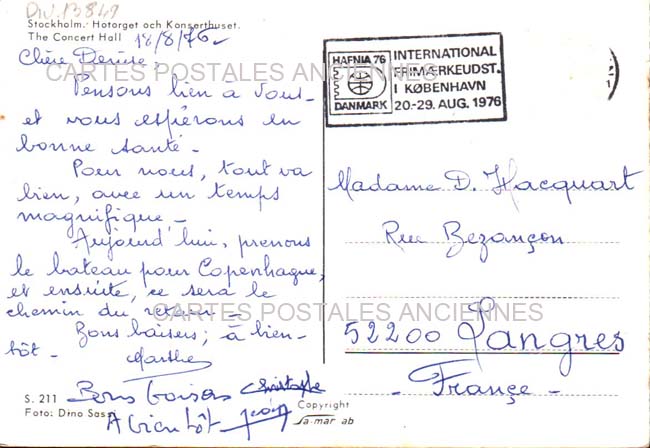 Div. 13849
Stockholm: Hötorget och Konserthuset.
The Concert Hall 18/8/76
Chère Denise,
Pensons bien à vous
et vous espérons en
bonne santé -
Pour nous, tout va
bien, avec un temps
magnifique -
Aujourd'hui, prenons
le bateau pour Copenhague,
et ensuite, ce sera le
chemin du retour -
Bons baisers; à bien-
tôt - Marthe
Bons baisers Christophe
A bientôt
S. 211
Foto: Dino Sassi
Copyright
Sa-mar ab
HAFNIA 76
DANMARK
INTERNATIONAL
FRIMÆRKEUDST.
I KØBENHAVN
20.-29. AUG. 1976
Madame D. Hacquart
Rue Bezançon
52200 Langres
- France -
CARTES POSTALES ANCIENNES
CARTES POSTALES ANCIENNES